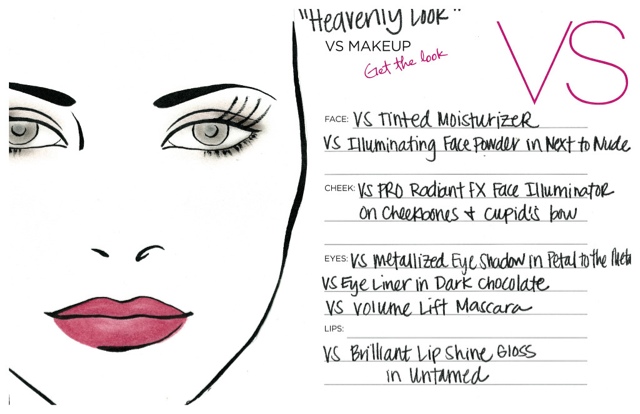 "Heavenly Look"
VS MAKEUP
Get the look
VS
FACE: VS Tinted Moisturizer
VS Illuminating Face Powder in Next to Nude
CHEEK: VS PRO Radiant FX Face Illuminator
on Cheekbones + Cupid's bow
EYES: VS Metallized Eye Shadow in Petal to the Meta
VS Eye Liner in Dark Chocolate
VS Volume Lift Mascara
LIPS:
VS Brilliant Lip Shine Gloss
in Untamed